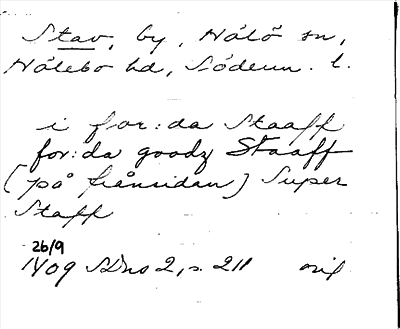 Stav, by, Hölö sn,
Hölebo hd, Söderm. l.
i for:da Staaff
for:da goodz Staaff
(på frånsidan) Super
Staff
26/9
1409 SDns 2, s. 211 orig